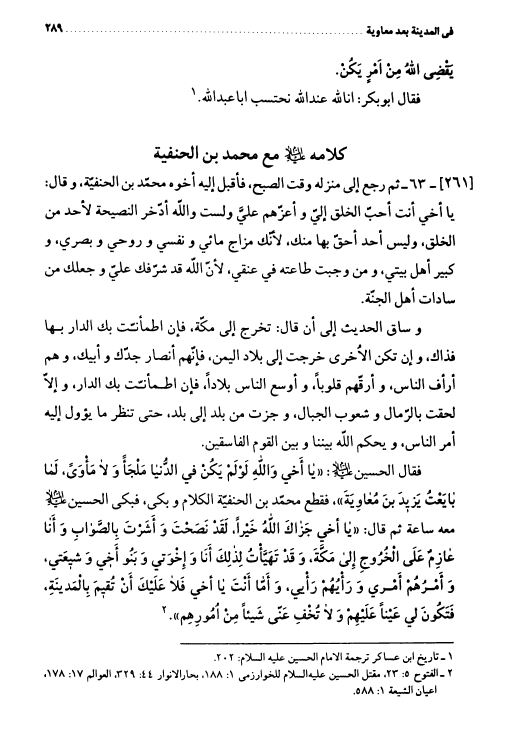 في المدينة بعد معاوية ........................................................ ٢٨٩
يَقْضِى اللهُ مِنْ اَمْرٍ يَكُنْ.
فقال ابوبكر: انالله عندالله نحتسب اباعبدالله.١
كلامه ﷺ مع محمد بن الحنفية
[٢٦١] ـ ٦٣ ـ ثم رجع إلى منزله وقت الصبح، فأقبل إليه أخوه محمّد بن الحنفيّة، و قال:
يا أخي أنت أحبّ الخلق إليّ و أعزّهم عليَّ ولست والله أدّخر النصيحة لأحد من
الخلق، وليس أحد أحقّ بها منك، لأنّك مزاج مائي و نفسي و روحي و بصري، و
كبير أهل بيتي، و من وجبت طاعته في عنقي، لأنّ الله قد شرّفك عليّ و جعلك من
سادات أهل الجنّة.
و ساق الحديث إلى أن قال: تخرج إلى مكّة، فإن اطمأنّت بك الدار بـها
فذاك، و إن تكن الأُخرى خرجت إلى بلاد اليمن، فإنّهم أنصار جدّك و أبيك، و هم
أرأف الناس، و أرقّهم قلوباً، و أوسع الناس بلاداً، فإن اطـمأنّت بك الدار، و إلاّ
لحقت بالرّمال و شعوب الجبال، و جزت من بلد إلى بلد، حتى تنظر ما يؤول إليه
أمر الناس، و يحكم الله بيننا و بين القوم الفاسقين.
فقال الحسين: «يا أَخي وَاللهِ لَوْلَمْ يَكُنْ في الدُّنْيا مَلْجَأً وَ لاَ مَأْوَىً، لَمٰا
بٰايَعْتُ يَزيدَ بْنَ مُعٰاوِيَةَ»، فقطع محمّد بن الحنفيّة الكلام و بكى، فبكى الحسين
معه ساعة ثم قال: «يا أخي جَزٰاكَ اللهُ خَيْراً، لَقَدْ نَصَحْتَ وَ أَشَرْتَ بِالصَّوٰابِ وَ أَنَا
عٰازِمٌ عَلَى الْخُرُوجِ إلىٰ مَكَّةَ، وَ قَدْ تَهَيَّأْتُ لِذلِكَ أَنَا وَ إخْوَتي وَ بَنُو أَخي وَ شيعَتي،
وَ أَمْـرُهُمْ أَمْـري وَ رَأْيُهُمْ رَأْيي، وَ أَمّٰا أَنْتَ يا أخي فَلاٰ عَلَيْكَ أَنْ تُقيمَ بِالْمَدينَةِ،
فَتَكُونَ لي عَيْناً عَلَيْهِمْ وَ لاٰ تُخْفِ عَنّي شَيْئاً مِنْ أُمُورِهِمْ».٢
١ ـ تاريخ ابن عساكر ترجمة الامام الحسين عليه السلام: ٢٠٢.
٢ ـ الفتوح ٥: ٢٣، مقتل الحسين عليه‌السلام للخوارزمي ١: ١٨٨، بحارالانوار ٤٤: ٣٢٩، العوالم ١٧: ١٧٨،
اعيان الشيعة ١: ٥٨٨.